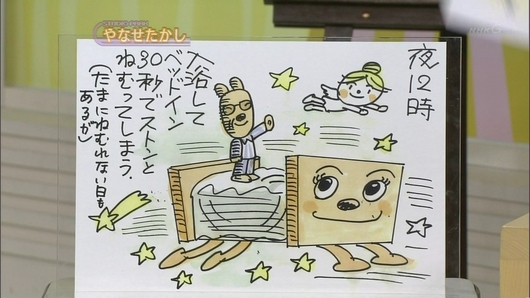 やなせたかし
夜12時
入浴して
ベッドイン
30秒でストンと
ねむってしまう.
(たまにねむれない日も
あるが)